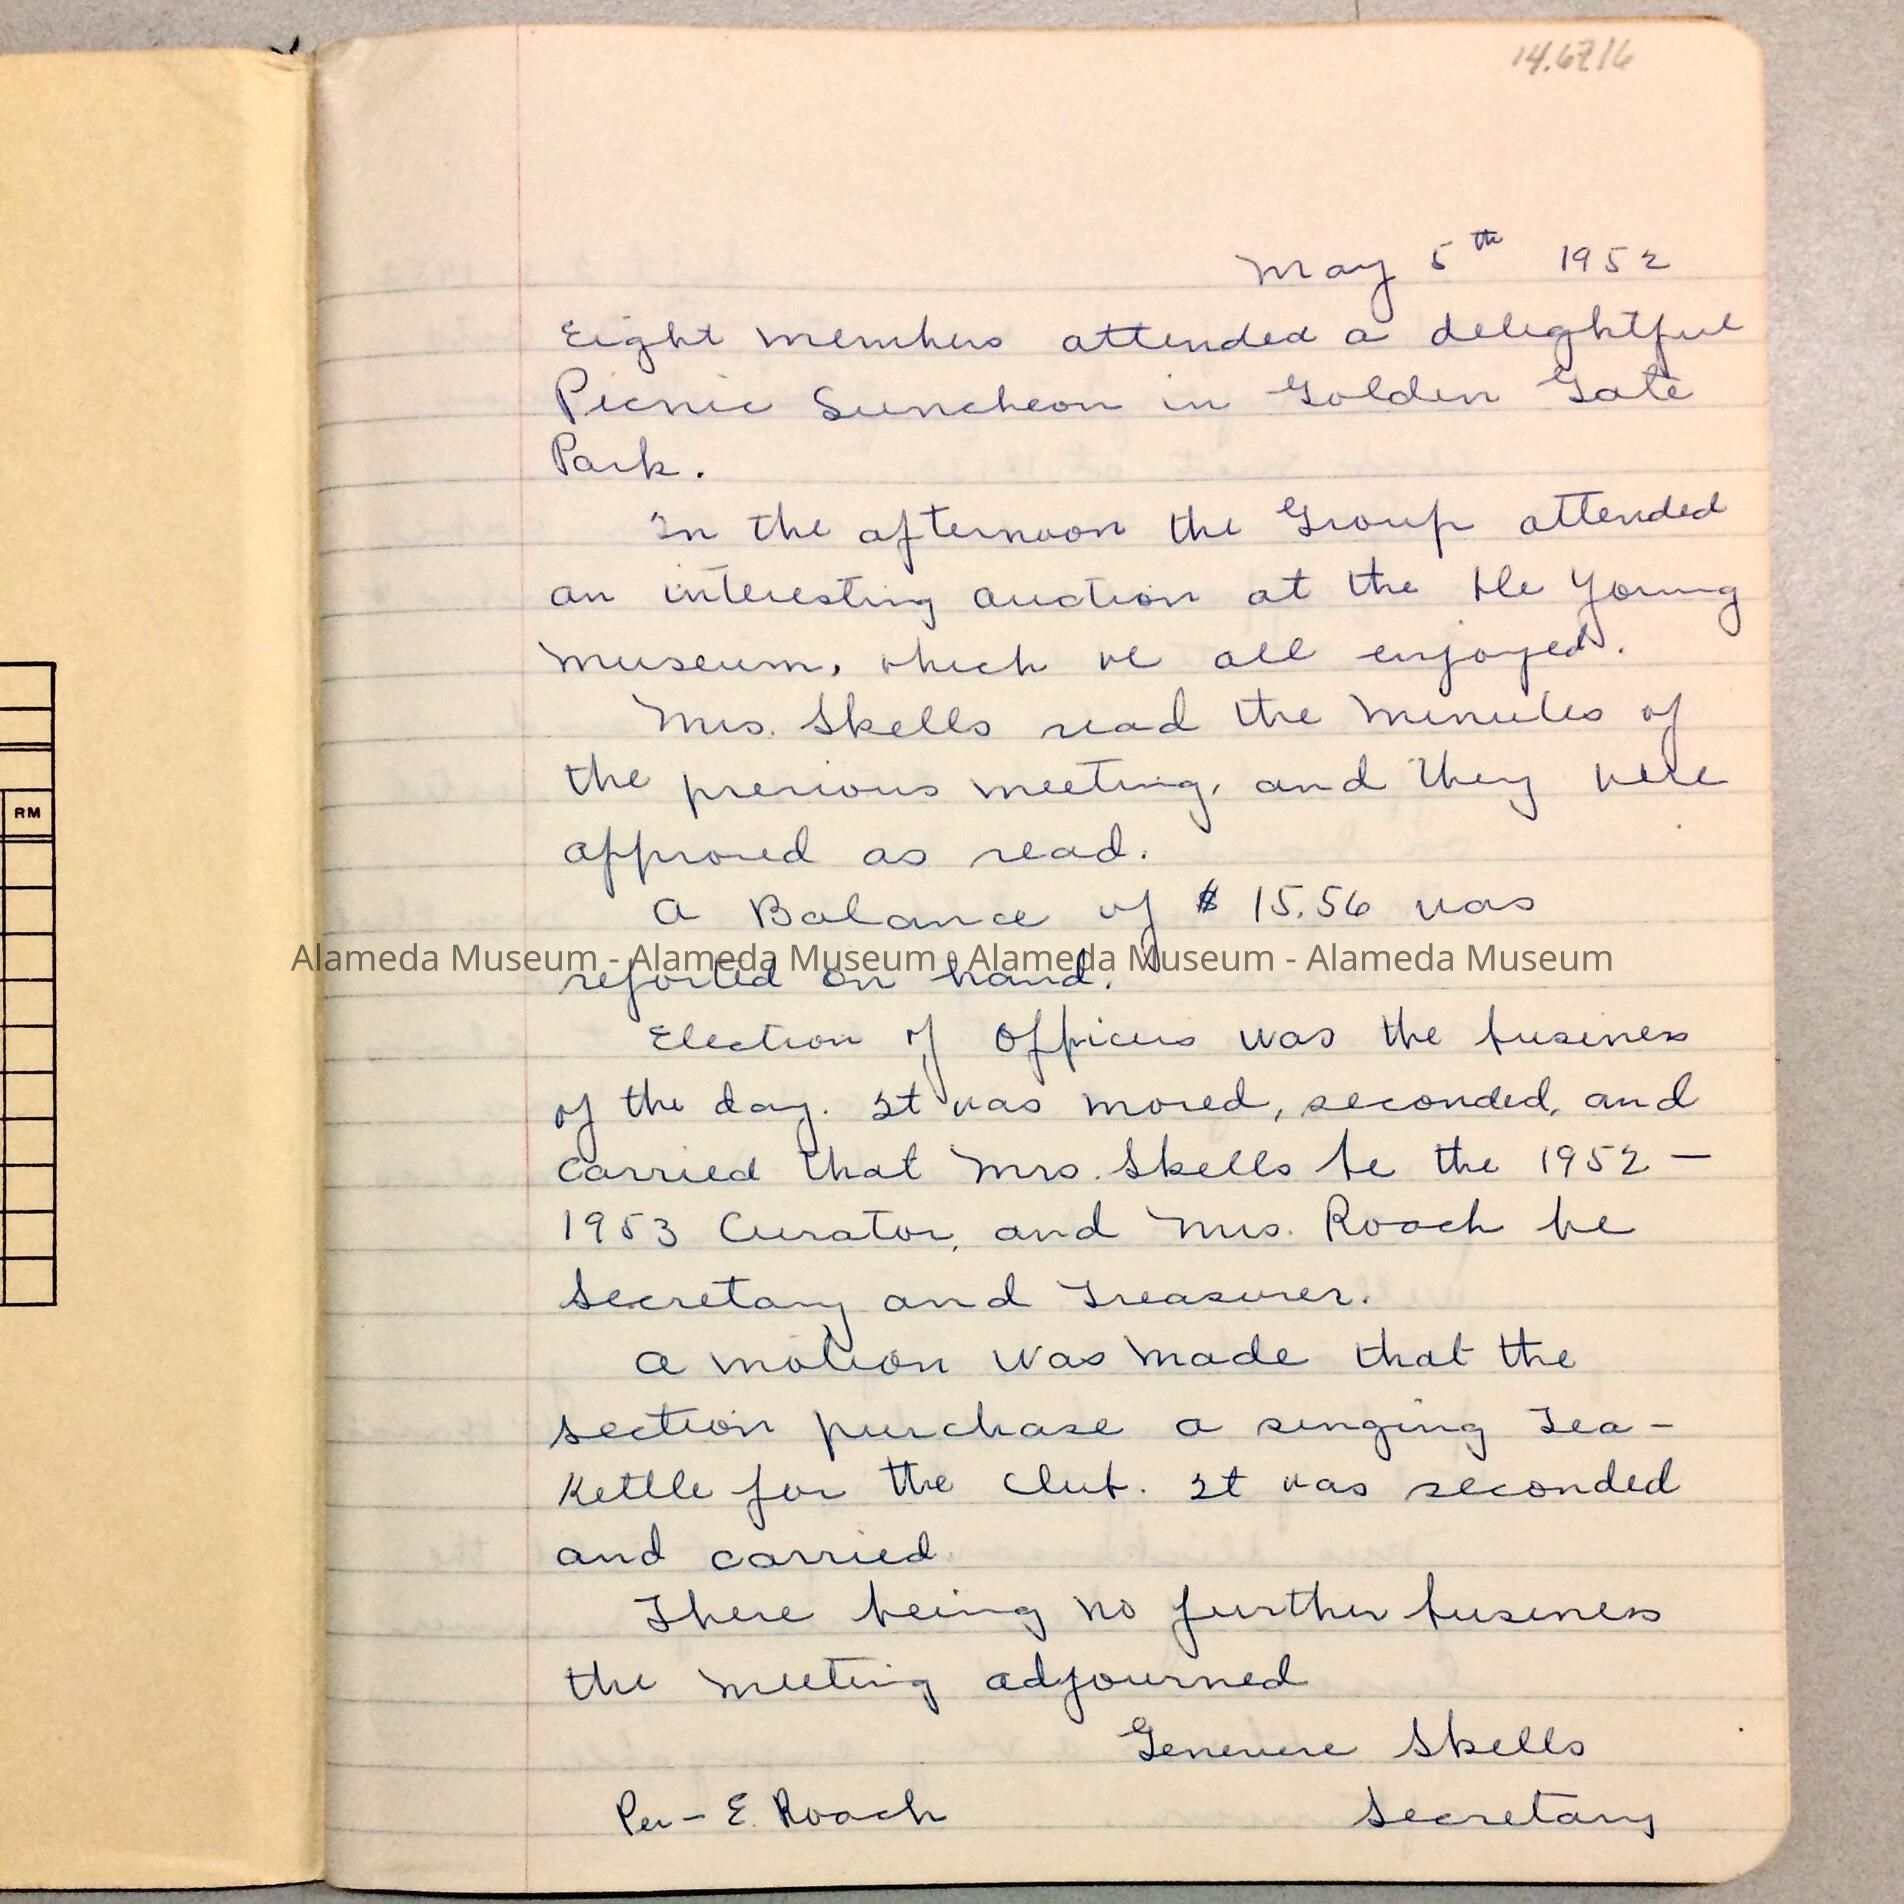 14.6716
May 5th 1952
Eight members attended a delightful
Picnic Luncheon in Golden Gate
Park.
In the afternoon the Group attended
an interesting auction at the De Young
Museum, which we all enjoyed.
Mrs. Skells read the minutes of
the previous meeting, and they were
approved as read.
A Balance of $ 15.56 was
Alameda Museum - Alameda Museum - Alameda Museum - Alameda Museum
reported on hand.
Election of Officers was the business
of the day. It was moved, seconded, and
carried that Mrs. Skells be the 1952 –
1953 Curator, and Mrs. Roach be
Secretary and Treasurer.
RM
A motion was made that the
section purchase a singing Tea -
Kettle for the Club. It was seconded
and carried.
There being no further business
the meeting adjourned
Genevere Skells
Per - E. Roach Secretary